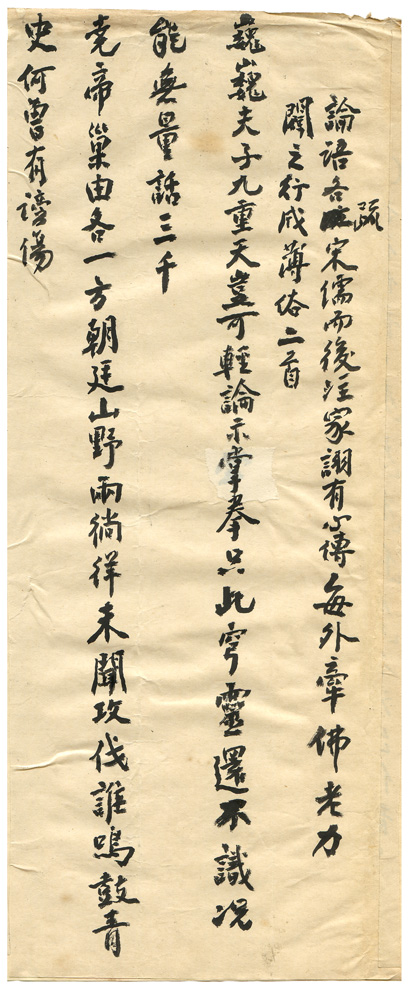 論語各疏宋儒而後註家謝有心傳每外牽佛老力
闢之行成薄俗二首
巍巍夫子九重天豈可輕論示掌拳只此穹靈還不識况
能無量話三千
堯帝巢由各一方朝廷山野兩徜徉未聞攻伐誰鳴鼓青
史何曾有謗傷